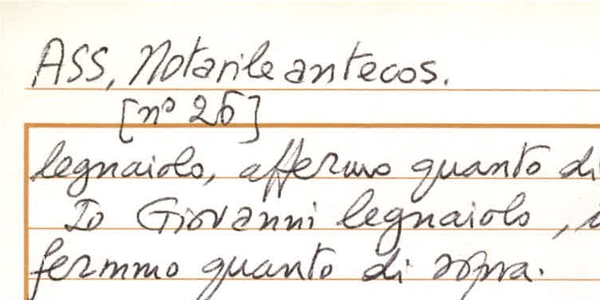 ASS, Notarile antecos.
[nº 26]
legnaiolo, affermo quanto di
Io Giovanni legnaiolo,
fermmo quanto di sopra.